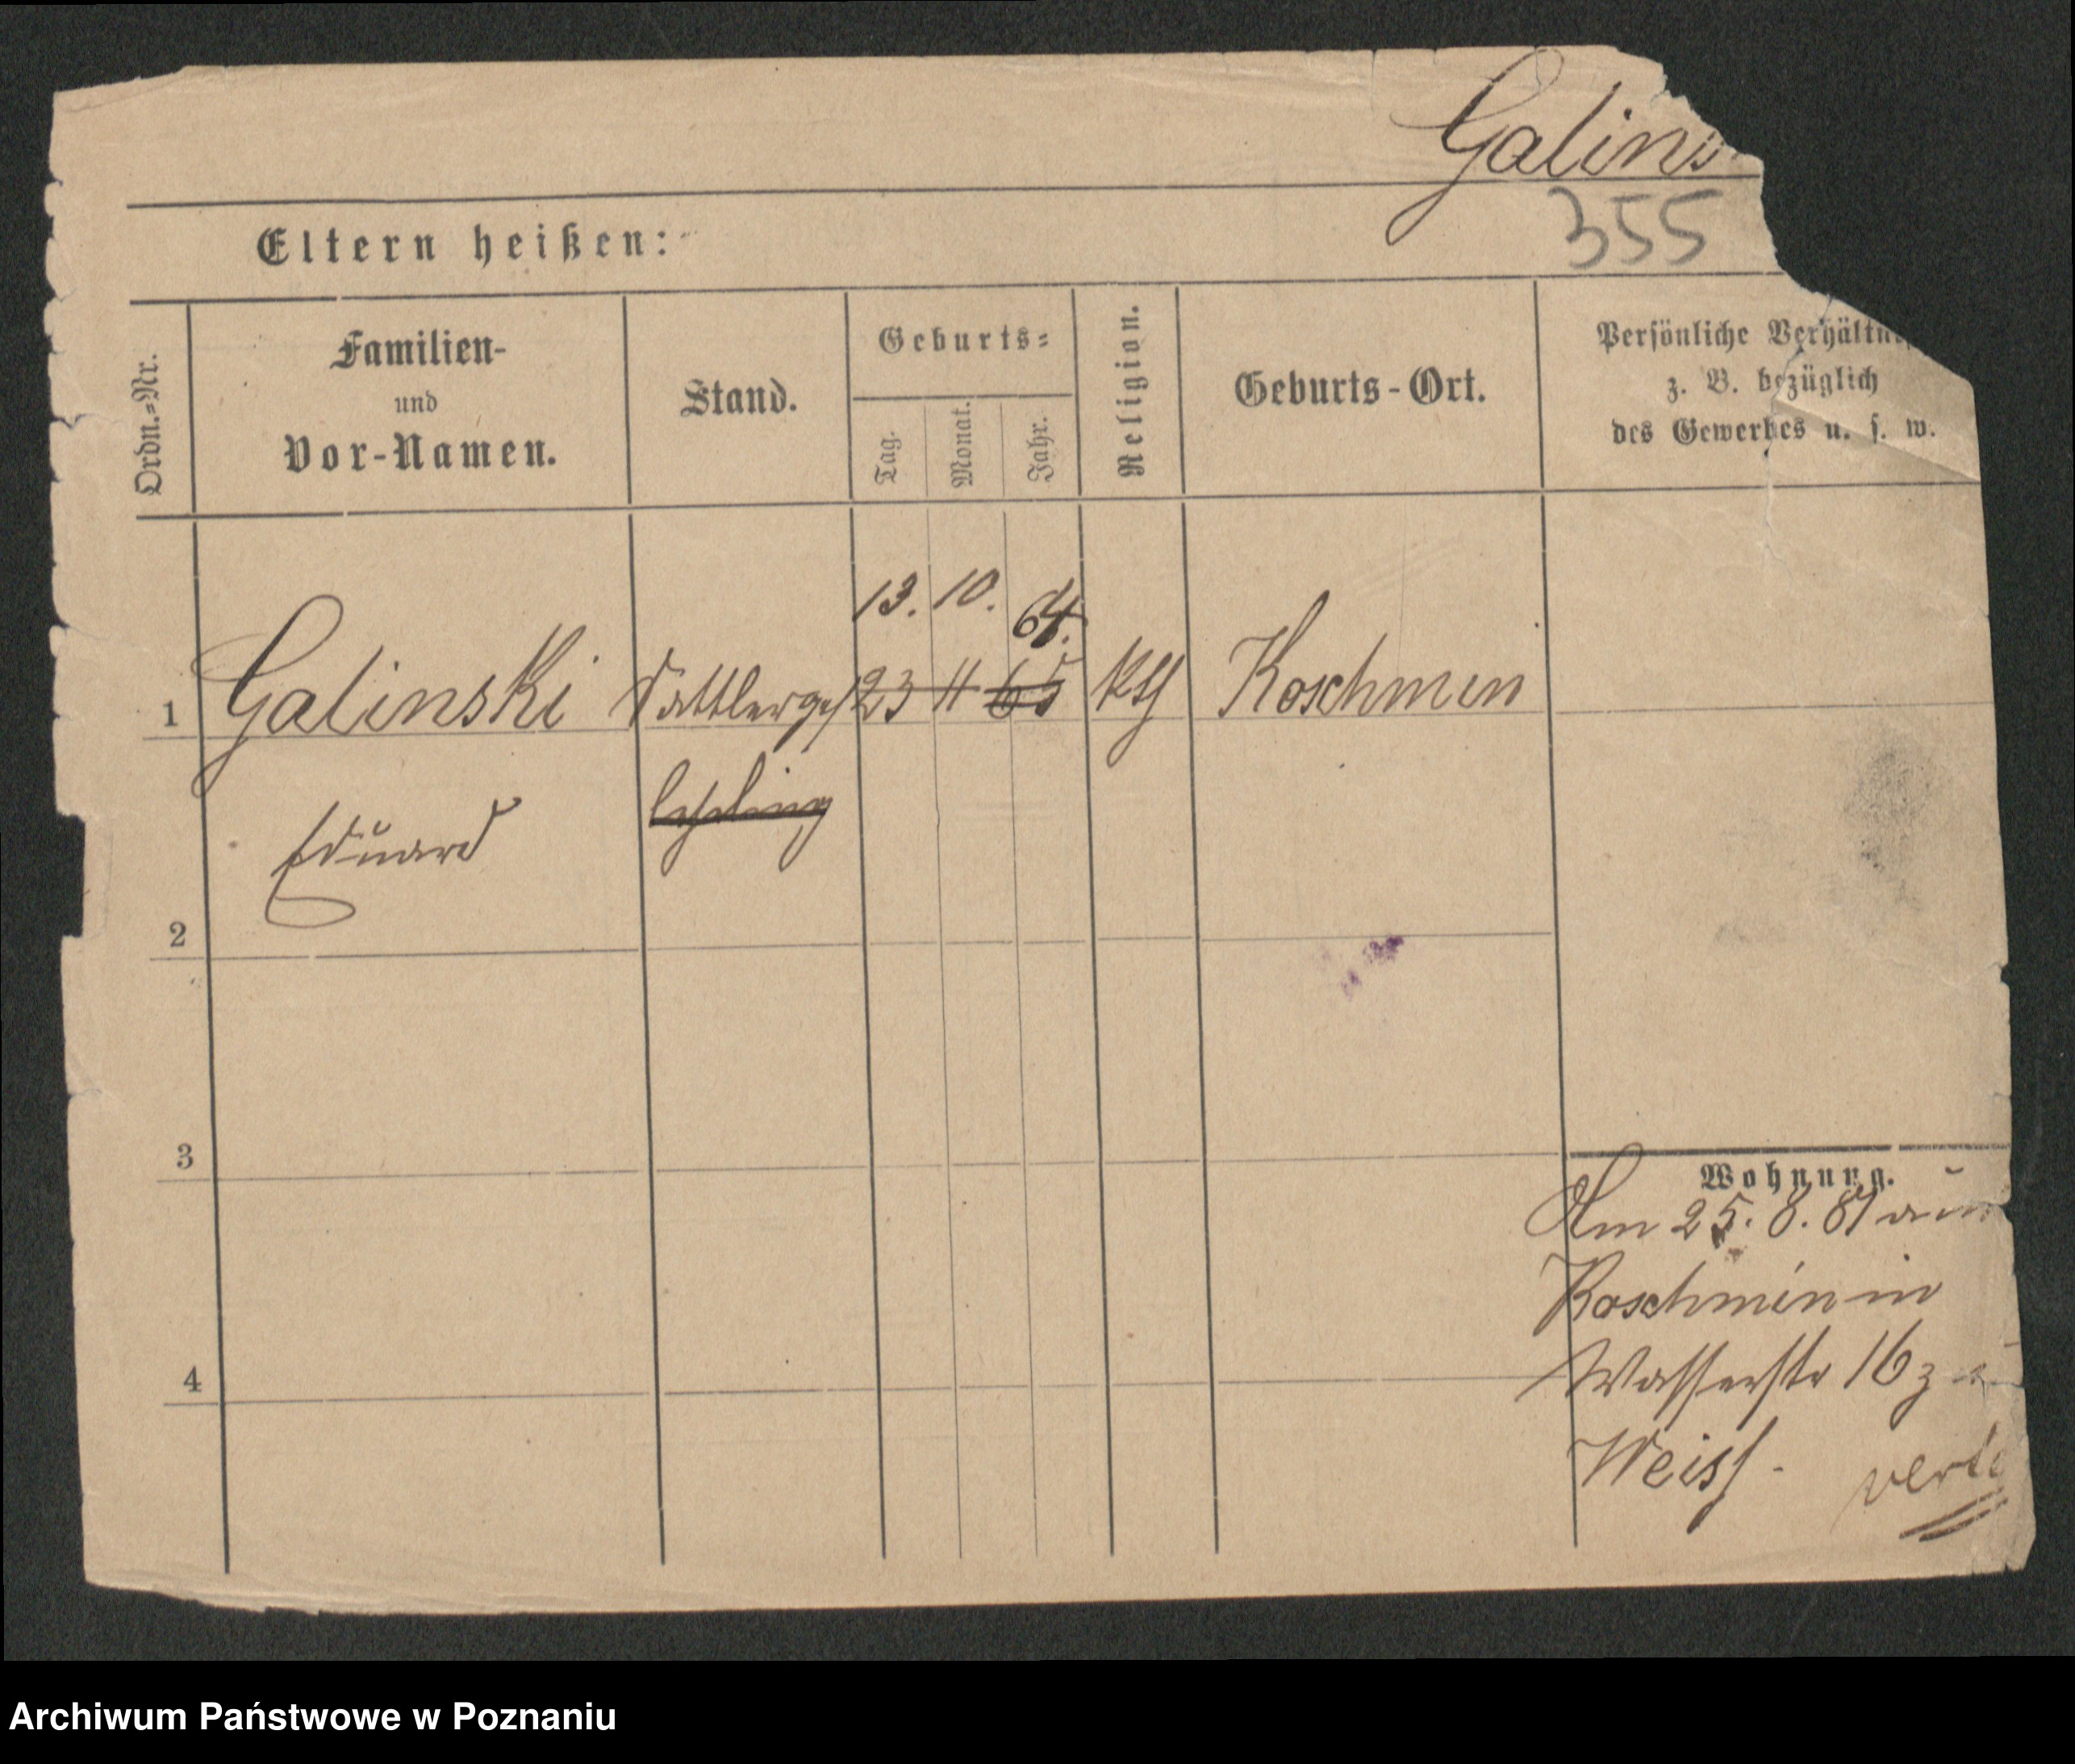 Galins
355
Eltern heißen:
Ordn.=Nr.
Familien-
und
Vor-Namen.
Stand.
Geburts=
Tag.
Monat.
Jahr.
Religion.
Geburts-Ort.
Persönliche Verhältn
z. B. bezüglich
des Gewerbes u. s. w.
13. 10. 64.
1 Galinski Sattlerges 23 11 65 kth Koschmin
Eduard Lehrling
2
3
4
Wohnung.
Am 25. 8. 81 aus
Koschmin in
Wasserstr 16 z
Weiss. verte
Archiwum Państwowe w Poznaniu